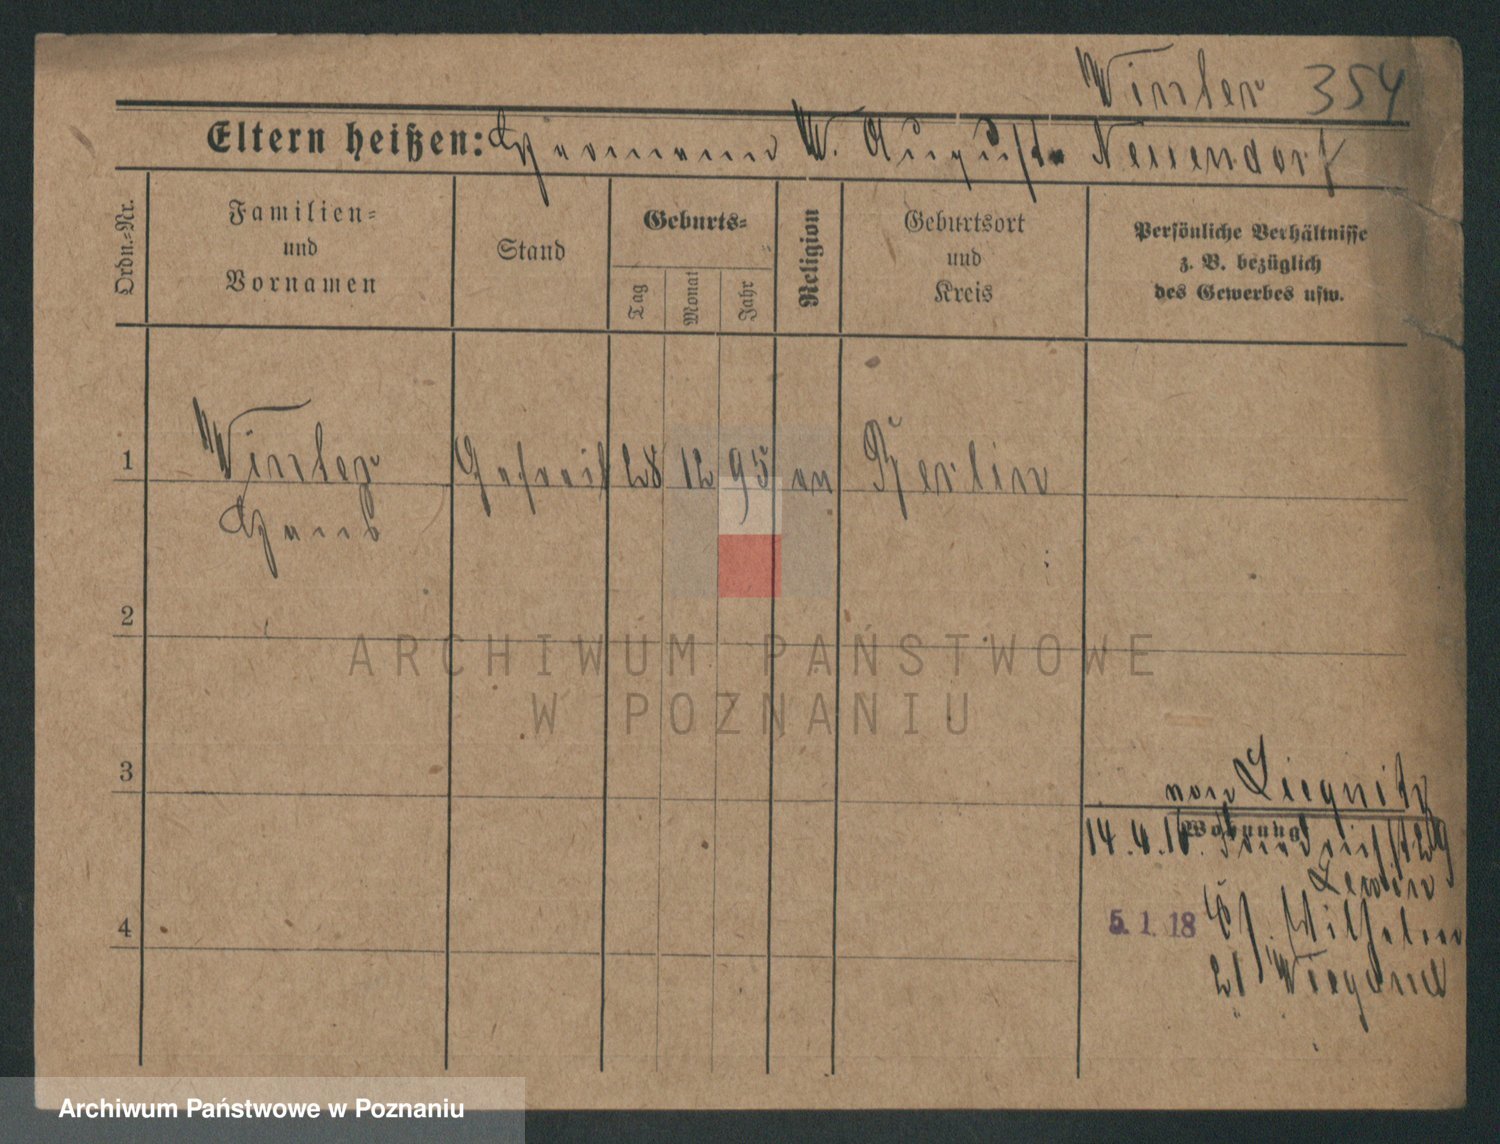 Winkler 354
Eltern heißen: Hermann W. Auguste Neuendorf
Ordn.-Nr.
Familien-
und
Vornamen
Stand
Geburts-
Tag
Monat
Jahr
Religion
Geburtsort
und
Kreis
Persönliche Verhältnisse
z. B. bezüglich
des Gewerbes usw.
1 Winkler Gefreit 28 12 95 ev Berlin
Hans
2
3
von Liegnitz
Wohnung
14.4.16.
Lewin
4
5. 1. 18 Wilhelm
21 Wiegand
ARCHIWUM PAŃSTWOWE
W POZNANIU
Archiwum Państwowe w Poznaniu